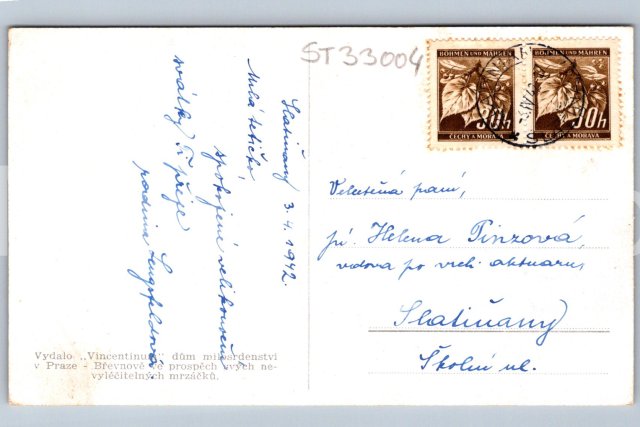 ST33004
BÖHMEN UND MÄHREN
30h
ČECHY A MORAVA
BÖHMEN UND MÄHREN
30h
ČECHY A MORAVA
Slatiňany 3. 4. 1942.
Milá tetičko
spokojené velikonoční
svátky Ti přeje
rodina
Velectěná paní,
pí. Helena Pinzová,
vdova po vrch. aktuáru,
Slatiňany
Školní ul.
Vydalo „Vincentinum“ dům milosrdenství
v Praze - Břevnově ve prospěch svých ne-
vyléčitelných mrzáčků.